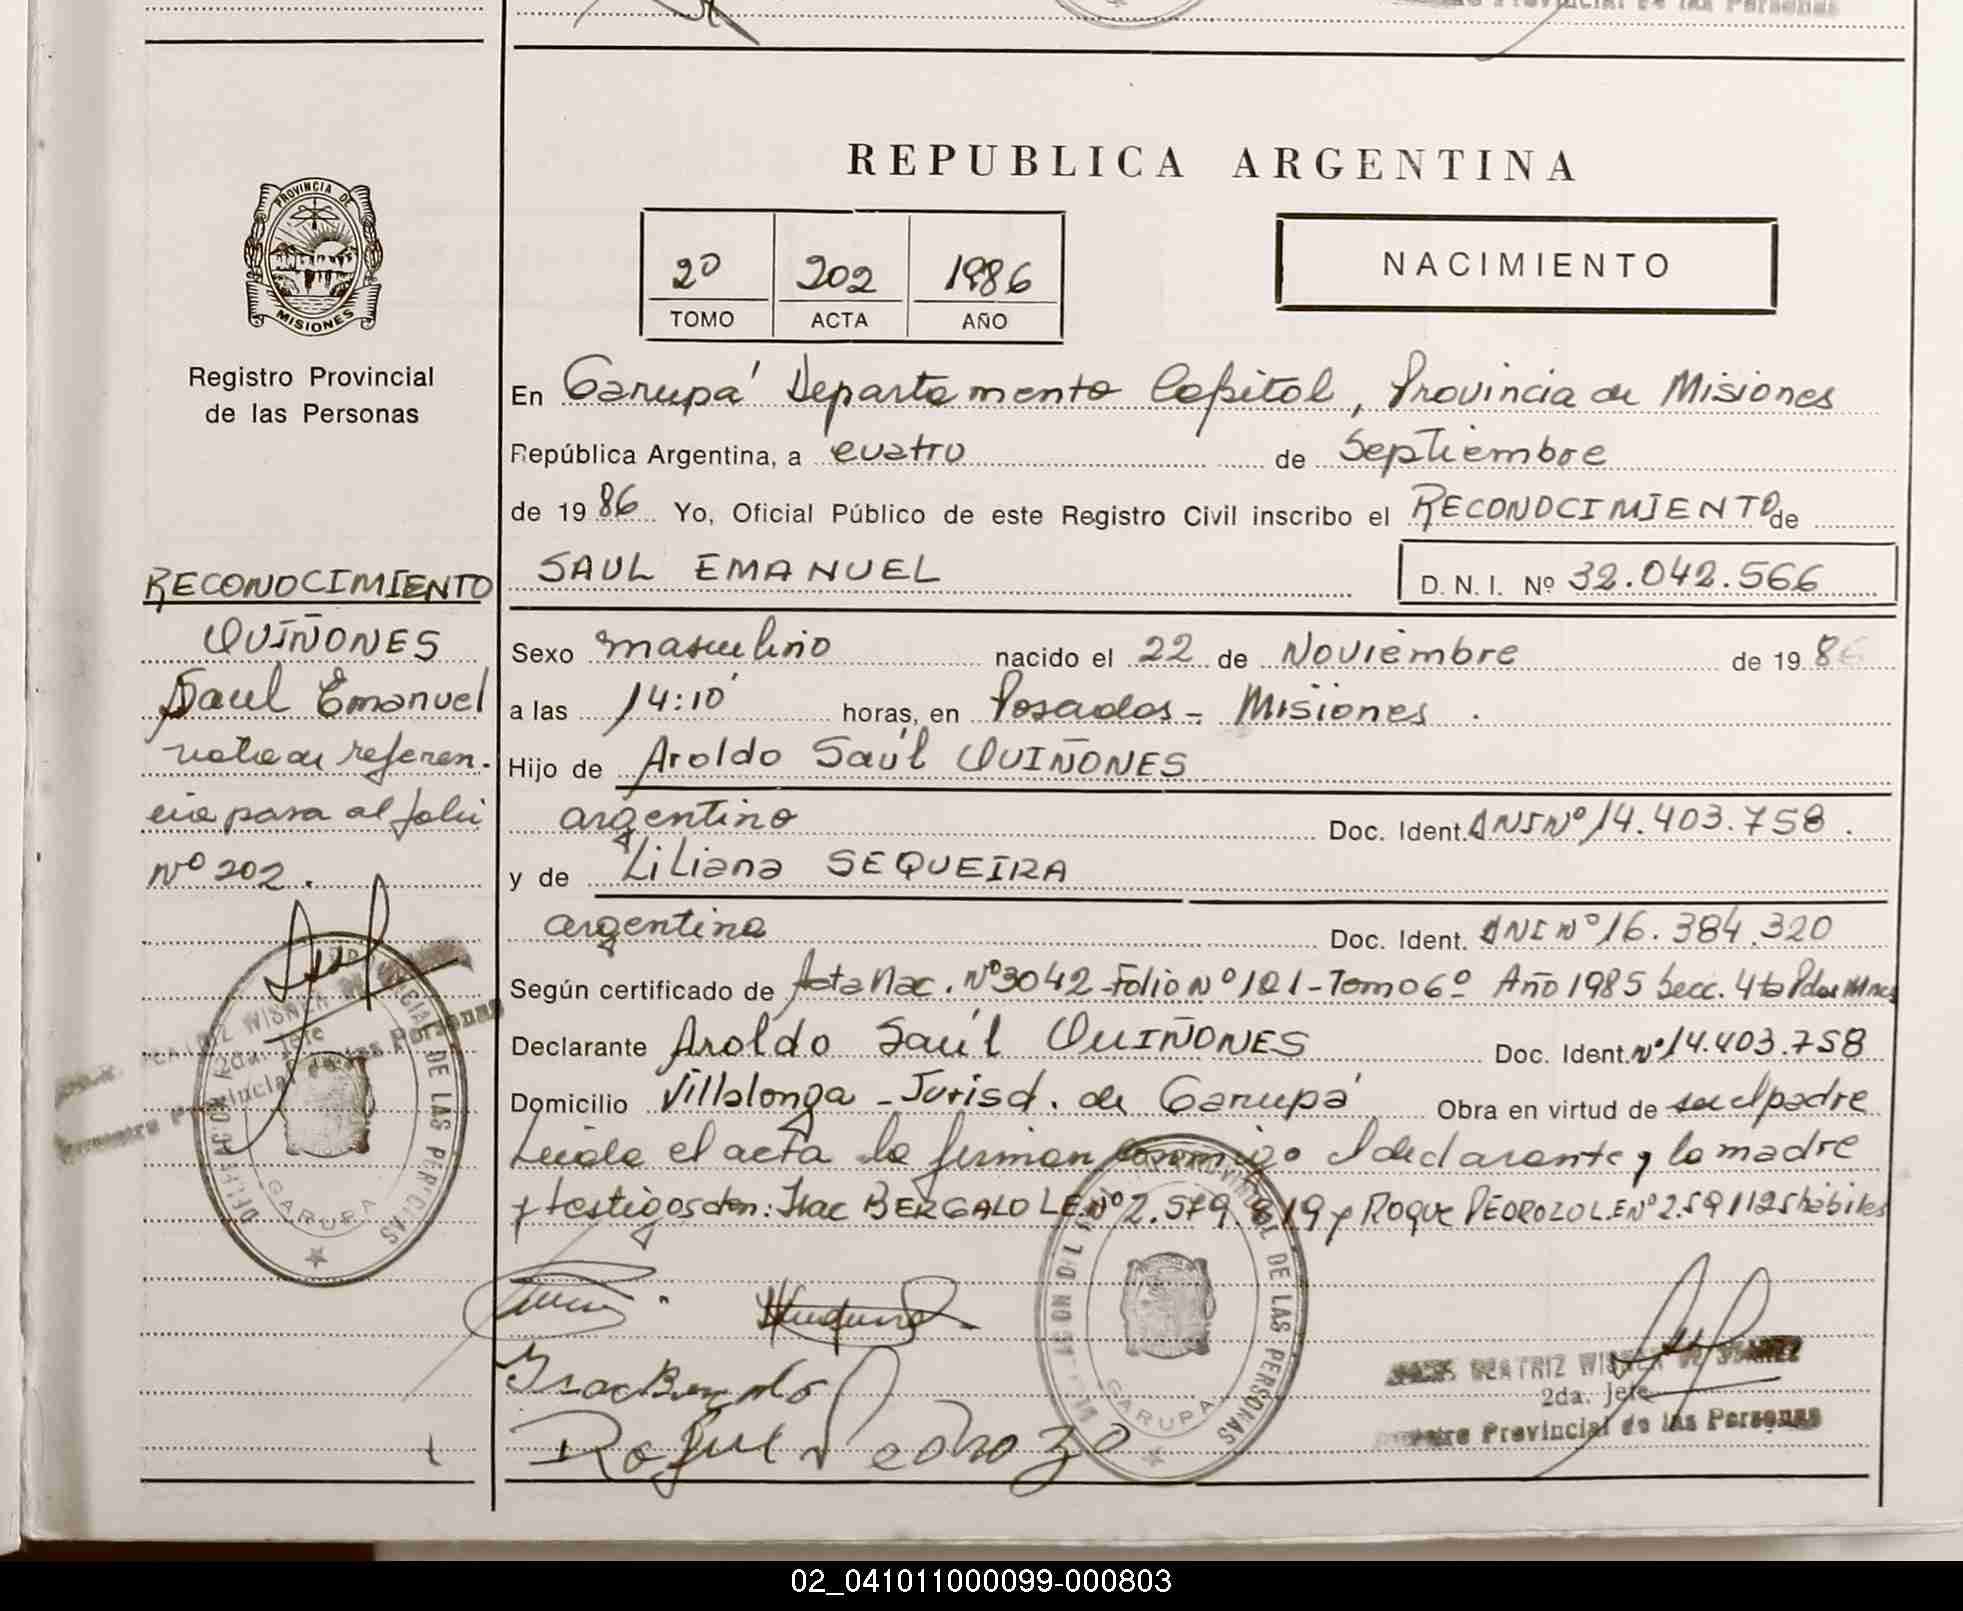 REPUBLICA ARGENTINA
PROVINCIA DE MISIONES
2º 202 1986
TOMO ACTA AÑO
NACIMIENTO
Registro Provincial
de las Personas
En Garupá Departamento Capital, Provincia de Misiones
República Argentina, a cuatro de Septiembre
de 1986 Yo, Oficial Público de este Registro Civil inscribo el RECONOCIMIENTO de
SAUL EMANUEL D.N.I. Nº 32.042.566
RECONOCIMIENTO
QUIÑONES
Saul Emanuel
nota de referen-
cia pasa al folio
Nº 202.
Sexo masculino nacido el 22 de Noviembre de 198
a las 14:10 horas, en Posadas - Misiones.
Hijo de Aroldo Saúl QUIÑONES
argentino Doc. Ident. DNI Nº 14.403.758.
y de Liliana SEQUEIRA
argentina Doc. Ident. DNI Nº 16.384.320
Según certificado de Acta Nac. Nº 3042 - Folio Nº 121 - Tomo 6º Año 1985 Secc. 4ta Pdas Mnes
Declarante Aroldo Saúl QUIÑONES Doc. Ident. Nº 14.403.758
Domicilio Villalonga - Jurisd. de Garupá Obra en virtud de ser el padre
Leída el acta la firman conmigo el declarante y la madre
y testigos don: Isac BERGALO L.E. Nº 2.579.819 y ROQUE PEDROZO L.E Nº 2.591125 hábiles
Roque Pedrozo
BEATRIZ WISNER DE SUAREZ
2da. Jefe
Registro Provincial de las Personas
DE LAS PERSONAS
GARUPA
02_041011000099-000803